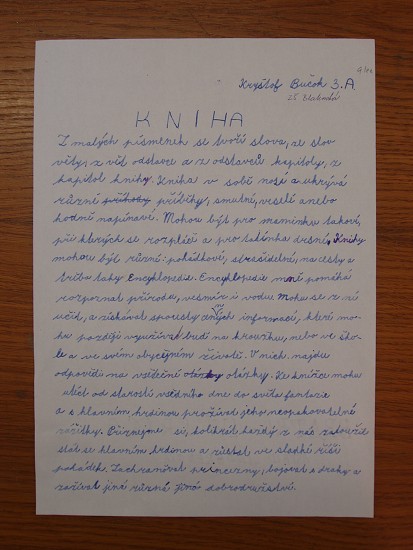 Kryštof Bučok 3.A
KNIHA
Z malých písmenek se tvoří slova, ze slov
věty, z vět odstavce a z odstavců kapitoly, z
kapitol knihy. Kniha v sobě nosí a ukrývá
různé příběhy, smutné, veselé anebo
hodně napínavé. Mohou být pro maminku takové,
při kterých se rozpláče a pro tatínka drsné. Knihy
mohou být různé: pohádkové, strašidelné, na cesty a
třeba taky Encyklopedie. Encyklopedie mně pomáhá
rozpoznat přírodu, vesmír i vodu. Mohu se z ní
učit, a získávat spousty cenných informací, které mo-
hu později využívat buď na kroužku, nebo ve ško-
le a ve svém obyčejném životě. V nich najdu
odpovědi na všetečné otázky. Ke knížce mohu
utéct od starostí všedního dne do světa fantazie
a s hlavním hrdinou prožívat jeho neopakovatelné
zážitky. Přiznejme si, kolikrát každý z nás zatoužil
stát se hlavním hrdinou a zůstat ve sladké říši
pohádek. Zachraňovat princezny, bojovat s draky a
zažívat jiná různá dobrodružství.